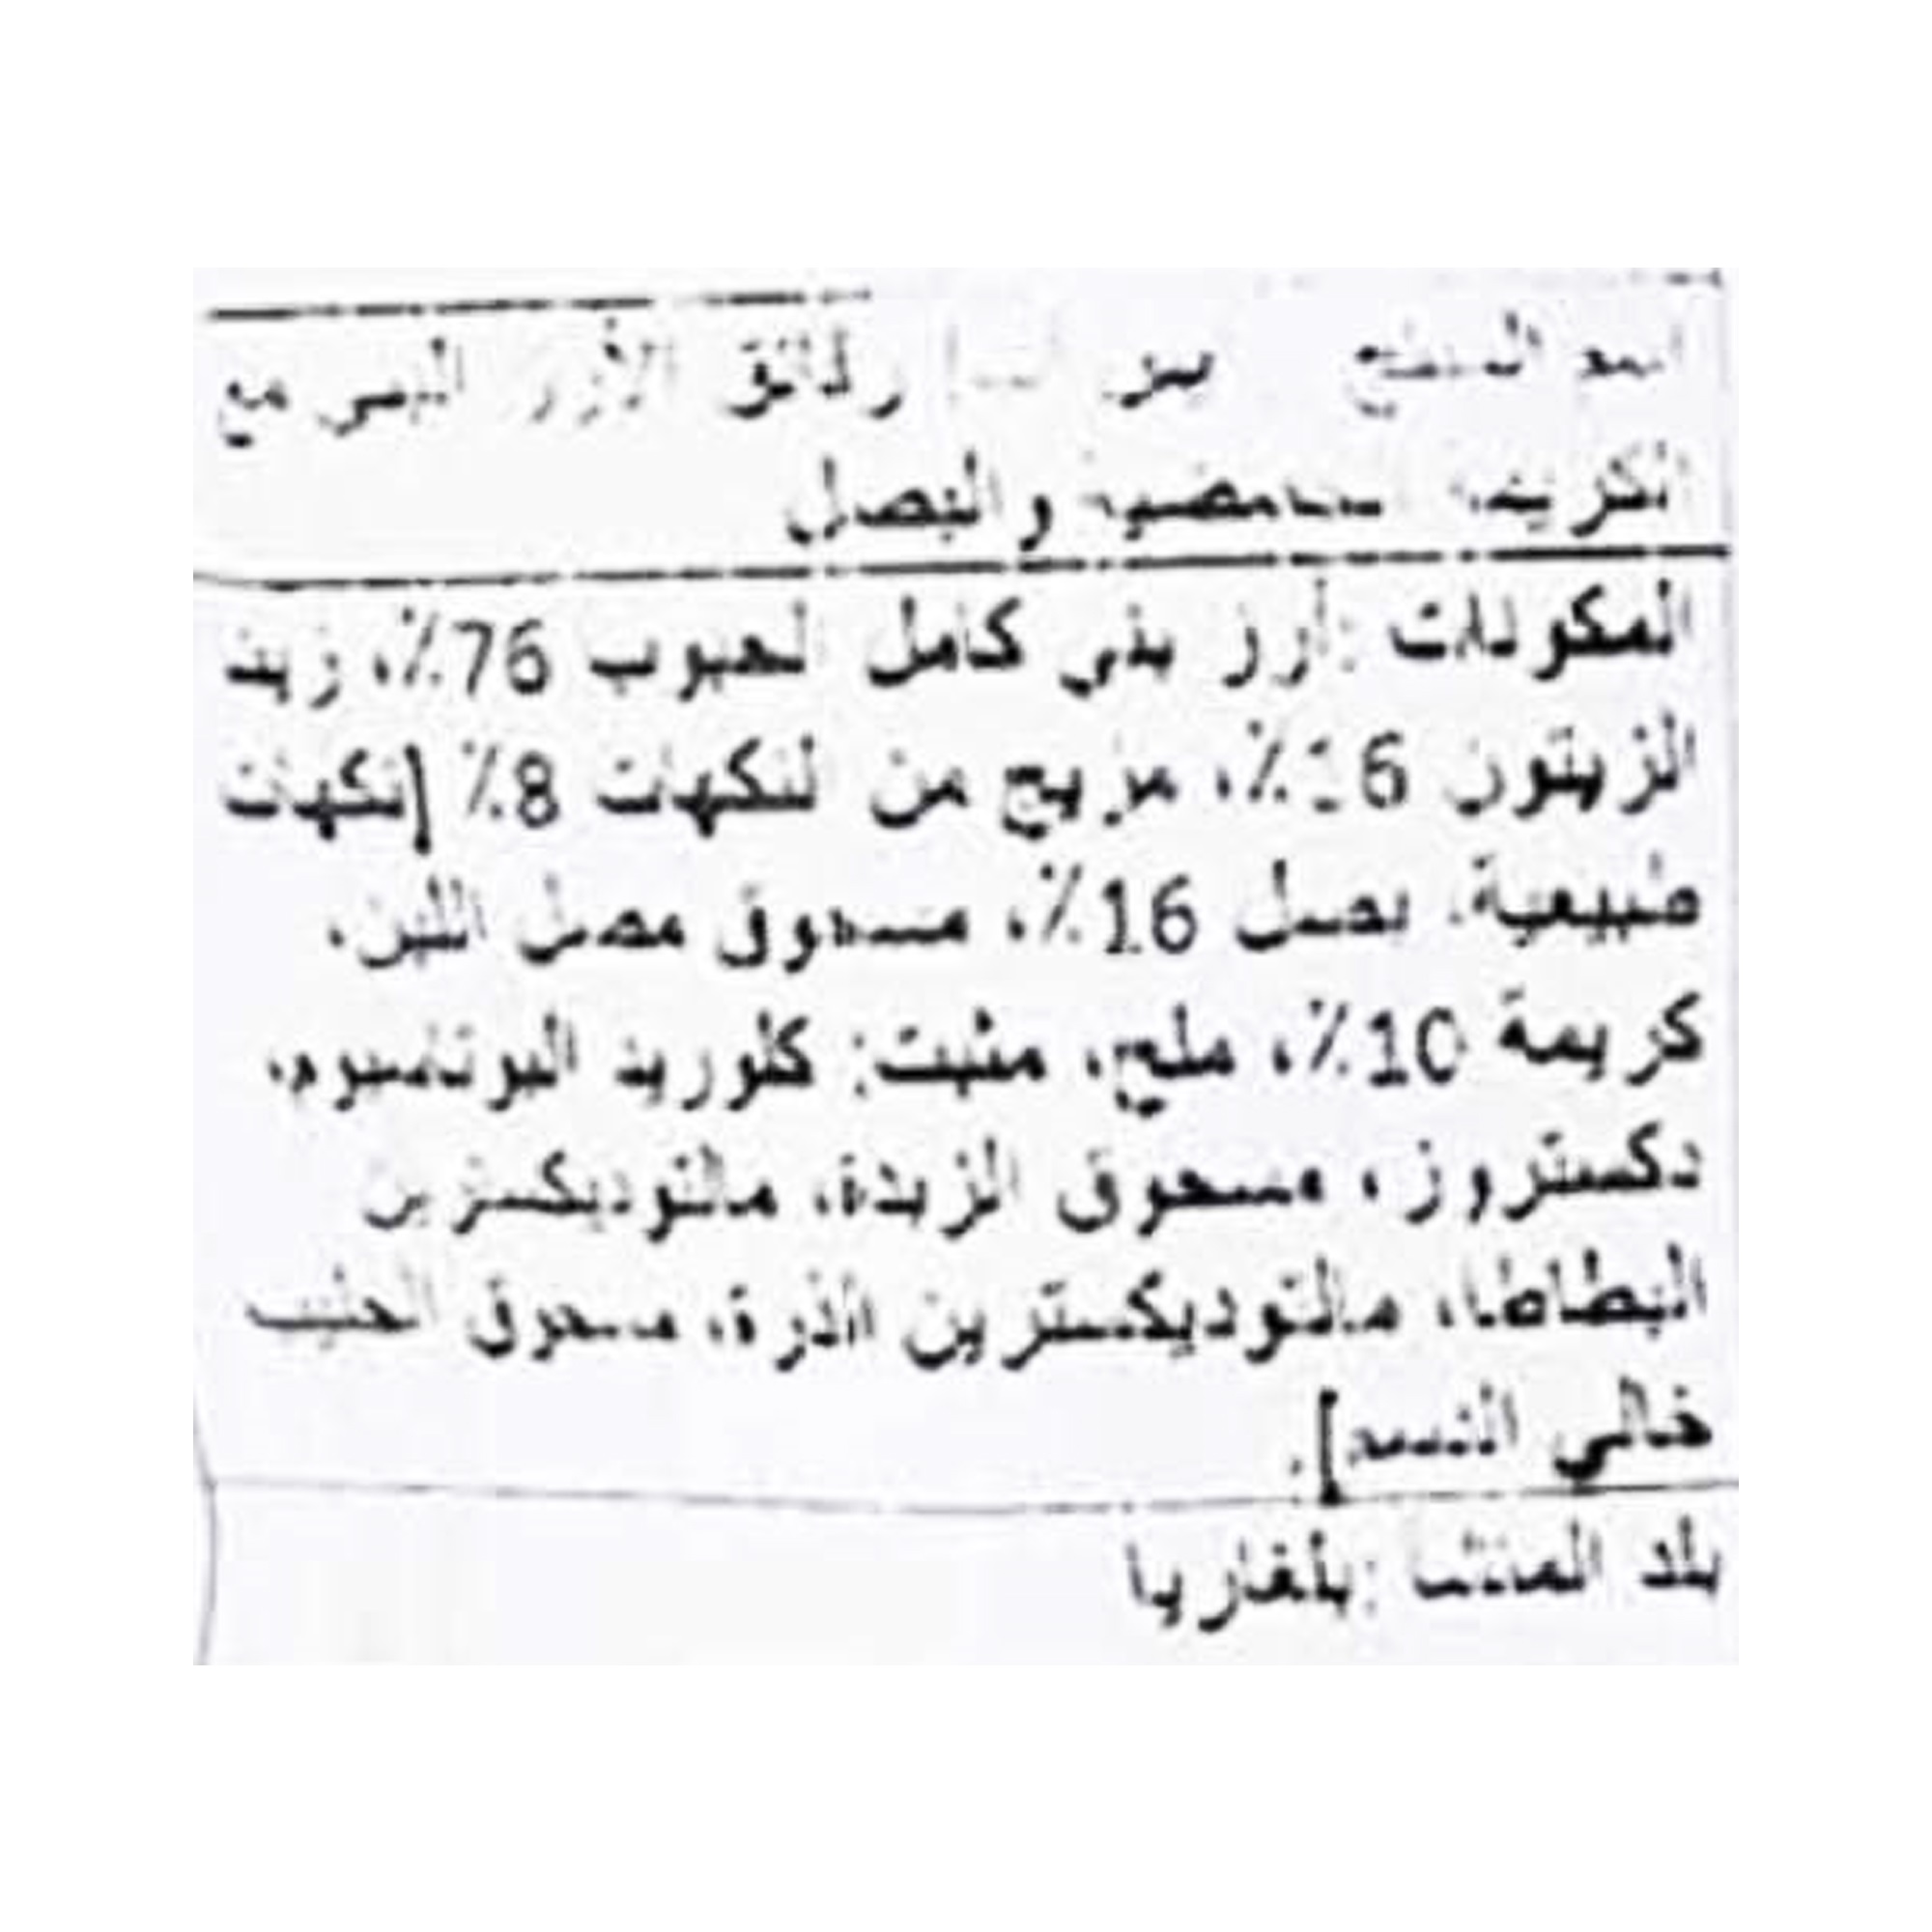 رقائق الأرز البني مع
الكريمة الحامضية والبصل
المكونات: أرز بني كامل الحبوب 76٪، زيت
الزيتون 16٪، مزيج من النكهات 8٪ [نكهات
طبيعية، بصل 16٪، مسحوق مصل اللبن،
كريمة 10٪، ملح، مثبت: كلوريد البوتاسيوم،
دكستروز، مسحوق الزبدة، مالتوديكسترين
البطاطا، مالتوديكسترين الذرة، مسحوق الحليب
خالي الدسم].
بلد المنشأ: بلغاريا